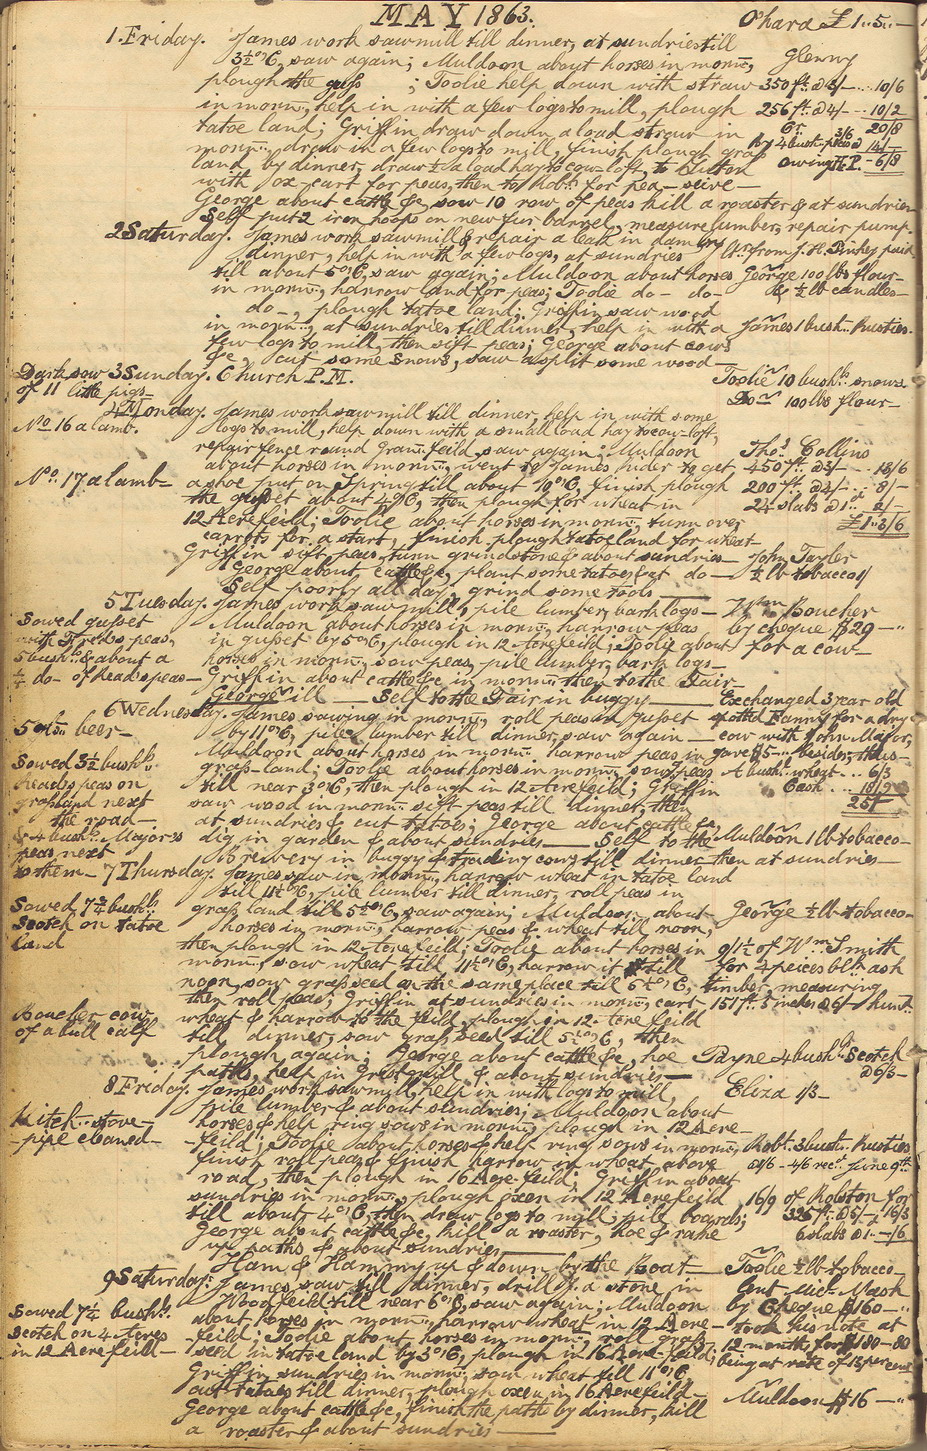 MAY 1863.
O'hara £1..5..—
1. Friday. James work sawmill till dinner, at sundries till
3½ o'C, saw again; Muldoon about horses in morn:,
plough the guss ; Toolie help down with straw
in morn:, help in with a few logs to mill, plough
tatoe land; Griffin draw down a load straw in
morn:, draw in a few logs to mill, finish plough gra
land by dinner, draw ½ a load hay to cow-loft, to
with ox-cart for peas, then to Rob:ts for pea-seive—
George about cattle &c, sow 10 row of peas kill a roaster & at sundries
Self put 2 iron hoops on new fur barrel, measure lumber, repair pump.
Glenny
350 ft. @ 3/— .. 10/6
256 ft. @ 4/— .. 10/2
20/8
Cr.
By 4 bush peas @ 3/6 14/—
owing H.P. — 6/8
2 Saturday. James work sawmill & repair a leak in dam by
dinner, help in with a few logs, at sundries
till about 5 o'C, saw again; Muldoon about horses
in morn:, harrow land for peas; Toolie do— do—
do—, plough tatoe land; Griffin saw wood
in morn:, at sundries till dinner, help in with a
few logs to mill, then sift peas; George about cows
&c, cut some snows, saw & split some wood—
from J. H. Pinhey paid
George 100 lbs flour—
& ½ lb candles—
James 1 bush.. Rusties.
Dark sow
of 11 little pigs—
3 Sunday. Church P.M.
Toolie 10 bush:ls snows
Do— 100 lbs flour—
No 16 a lamb.
4 Monday. James work sawmill till dinner, help in with some
logs to mill, help down with a small load hay to cow-loft,
repair fence round Gran: feild, saw again; Muldoon
about horses in morn:, went to James Rider to get
a shoe put on Spring till about 10 o'C, finish plough
the gusset about 4 o'C, then plough for wheat in
12 Acre feild; Toolie about horses in morn:, turn over
carrots for a start, finish plough tatoe land for wheat
Griffin sift peas, turn grindstone & about sundries—
George about cattle &c, plant some tatoes &c do—
Self poorly all day, grind some tools—
No. 17 a lamb—
Tho:s Collins
450 ft. @ 3/— .. 18/6
200 ft. @ 4/— .. 8/—
24 slabs @ 1:d .. 2/—
£1..3/6
John Tayler
½ lb tobacco 1/
5 Tuesday. James, work sawmill, pile lumber, bark logs—
Muldoon about horses in morn:, harrow peas
in gusset by 5 o'C, plough in 12 Acre feild; Toolie about
horses in morn:, sow peas, pile lumber, bark logs—
Griffin about cattle &c in morn: then to the Fair—
George ill — Self to the Fair in buggy—
Sowed gusset
with Treds peas,
5 bush:ls & about a
¼ do— of heads peas—
W:m Boucher
by cheque $29—"
for a cow—
6 Wednesday. James sawing in morn:, roll peas in gusset
by 11 o'C, pile lumber till dinner, saw again—
Muldoon about horses in morn: harrow peas in
grass-land; Toolie about horses in morn: sow peas
till near 3 o'C, then plough in 12 Acre feild; Griffin
saw wood in morn: sift peas till dinner, then
at sundries & cut tatoes; George about cattle &c,
dig in garden & about sundries — Self to the
Brewery in buggy & trading cows till dinner then at sundries—
5 gls: beer—
Sowed 3½ bush:ls
heads peas on
grassland next
the road—
& 4 bush:ls Mayor's
peas next
to them—
Exchanged 3 year old
of old Fanny for a dry
cow with John Major,
gave $5— besides, thus—
A bush: wheat .. 6/3
Cash .. 18/9
25/
Muldoon 1 lb tobacco—
7 Thursday. James saw in morn:, harrow wheat in tatoe land
till 11½ o'C, pile lumber till dinner, roll peas in
grass land till 5½ o'C, saw again; Muldoon about
horses in morn:, harrow peas & wheat till noon,
then plough in 12 Acre feild; Toolie about horses in
morn:, sow wheat till 11½ o'C, harrow it till
noon, sow grass seed on the same place till 5½ o'C,
then roll peas; Griffin at sundries in morn:, cart
wheat & harrow to the feild, plough in 12-Acre feild
till dinner, sow grass seed till 5½ o'C, then
plough again; George about cattle &c, hoe
paths, help in & about sundries—
Sowed 7¾ bush:ls
Scotch on tatoe
land
Boucher cow
of a bull calf
George ½ lb tobacco—
9/1½ of W:m Smith
for 4 peices blk ash
timber, measuring
151 ft. 3 inches @ 6/— hund:
Payne 4 bush:ls Scotch
@ 6/3—
8 Friday. James work sawmill, help in with logs to mill,
pile lumber & about sundries; Muldoon about
horses & help ring sows in morn:, plough in 12 Acre—
feild; Toolie about horses & help ring sows in morn:,
finish roll peas & finish harrow in wheat above
road, then plough in 16 Acre feild; Griffin about
sundries in morn:, plough oxen in 12 Acre feild
till about 4 o'C, then draw logs to mill, pile boards;
George about cattle &c, kill a roaster, hoe & rake
up paths & about sundries—
Ham & Hammy up & down by the Boat—
Kitch.. stove—
—pipe cleaned—
Eliza 1/3—
Rob:t 3 bush.. Rusties
@ 1/6 — 4/6 rec:d June 9:th
16/9 of Rolston for
325 ft. @ 5/— 16/3
6 slabs @ 1.. —/6
Toolie ½ lb tobacco—
9 Saturday. James saw till dinner, drill a stone in
Wood feild till near 6 o'C, saw again; Muldoon
about horses in morn:, harrow wheat in 12 Acre—
feild; Toolie about horses in morn:, roll grass
seed in tatoe land by 3 o'C, plough in 16 Acre feild;
Griffin sundries in morn:, sow wheat till 11 o'C
cut tatoes till dinner, plough oxen in 16 Acre feild—
George about cattle &c, finish the path by dinner, kill
a roaster & about sundries—
Sowed 7¼ bush:ls
Scotch on 4 Acres
in 12 Acre feild—
Lent Mich: Nash
by Cheque $160—"
took his note at
12 months for $180—80
being at rate of 13 per cent
Muldoon $16—"